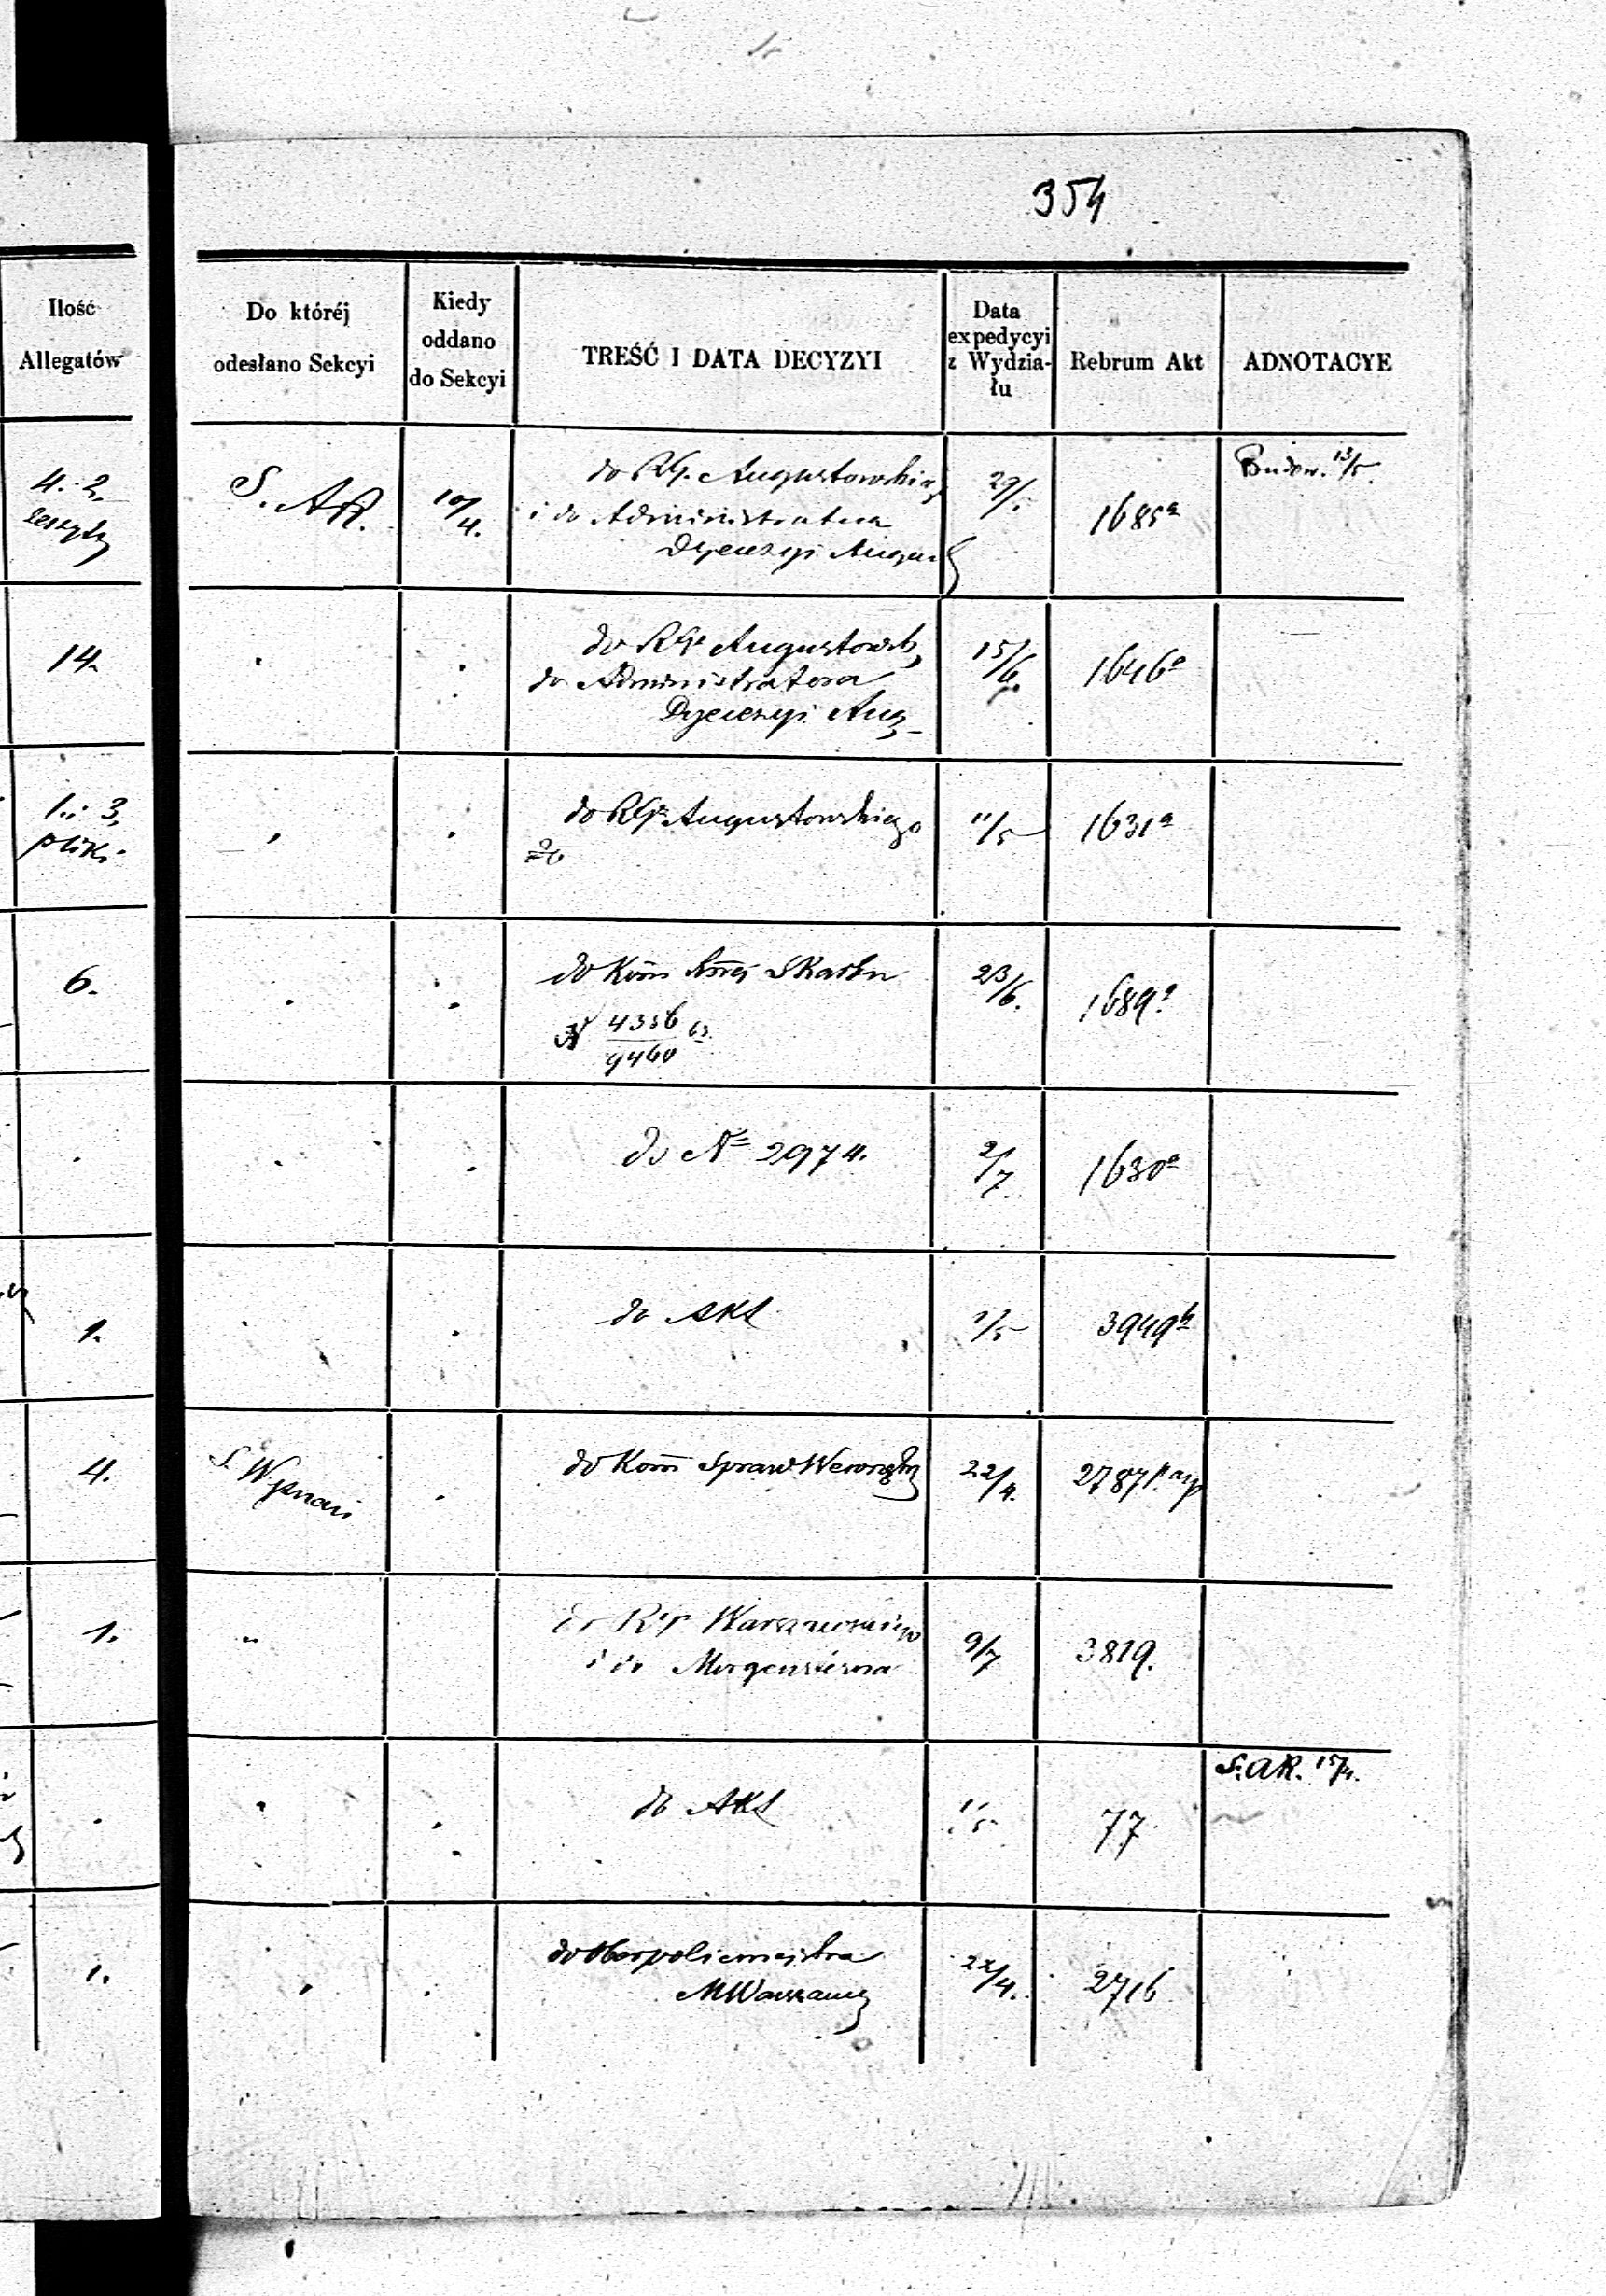 354
Ilość
Allegatów
Do któréj
odesłano Sekcyi
Kiedy
oddano
do Sekcyi
TREŚĆ I DATA DECYZYI
Data
expedycyi
z Wydzia-
łu
Rebrum Akt
ADNOTACYE
4. 2.
S. AR.
10/4.
do RG. Augustowskieg
i do Administratora
Dyecezyi Augus
29/5
1685a
Budow. 13/5.
14.
do RGo Augustowsk
do Administratora
Dyecezyi Aug
15/6.
1646a
1. i 3,
pliki
do RGo Augustowskiego
11/5
1631a
6.
do Kom Skarbu
N 4356/9460 63.
23/6.
1689a
do No 2974.
2/7.
1630a
1.
do Akt
3949b
4.
S. Wyznań
do Kom Spraw Wewnętrz
22/4.
2787
1.
do RG Warszawskiego
i do Morgensterna
9/7
3819.
do Akt
77
S. AR. 15/4.
1.
do Oberpolicmejstra
M Warszawy
22/4.
2716